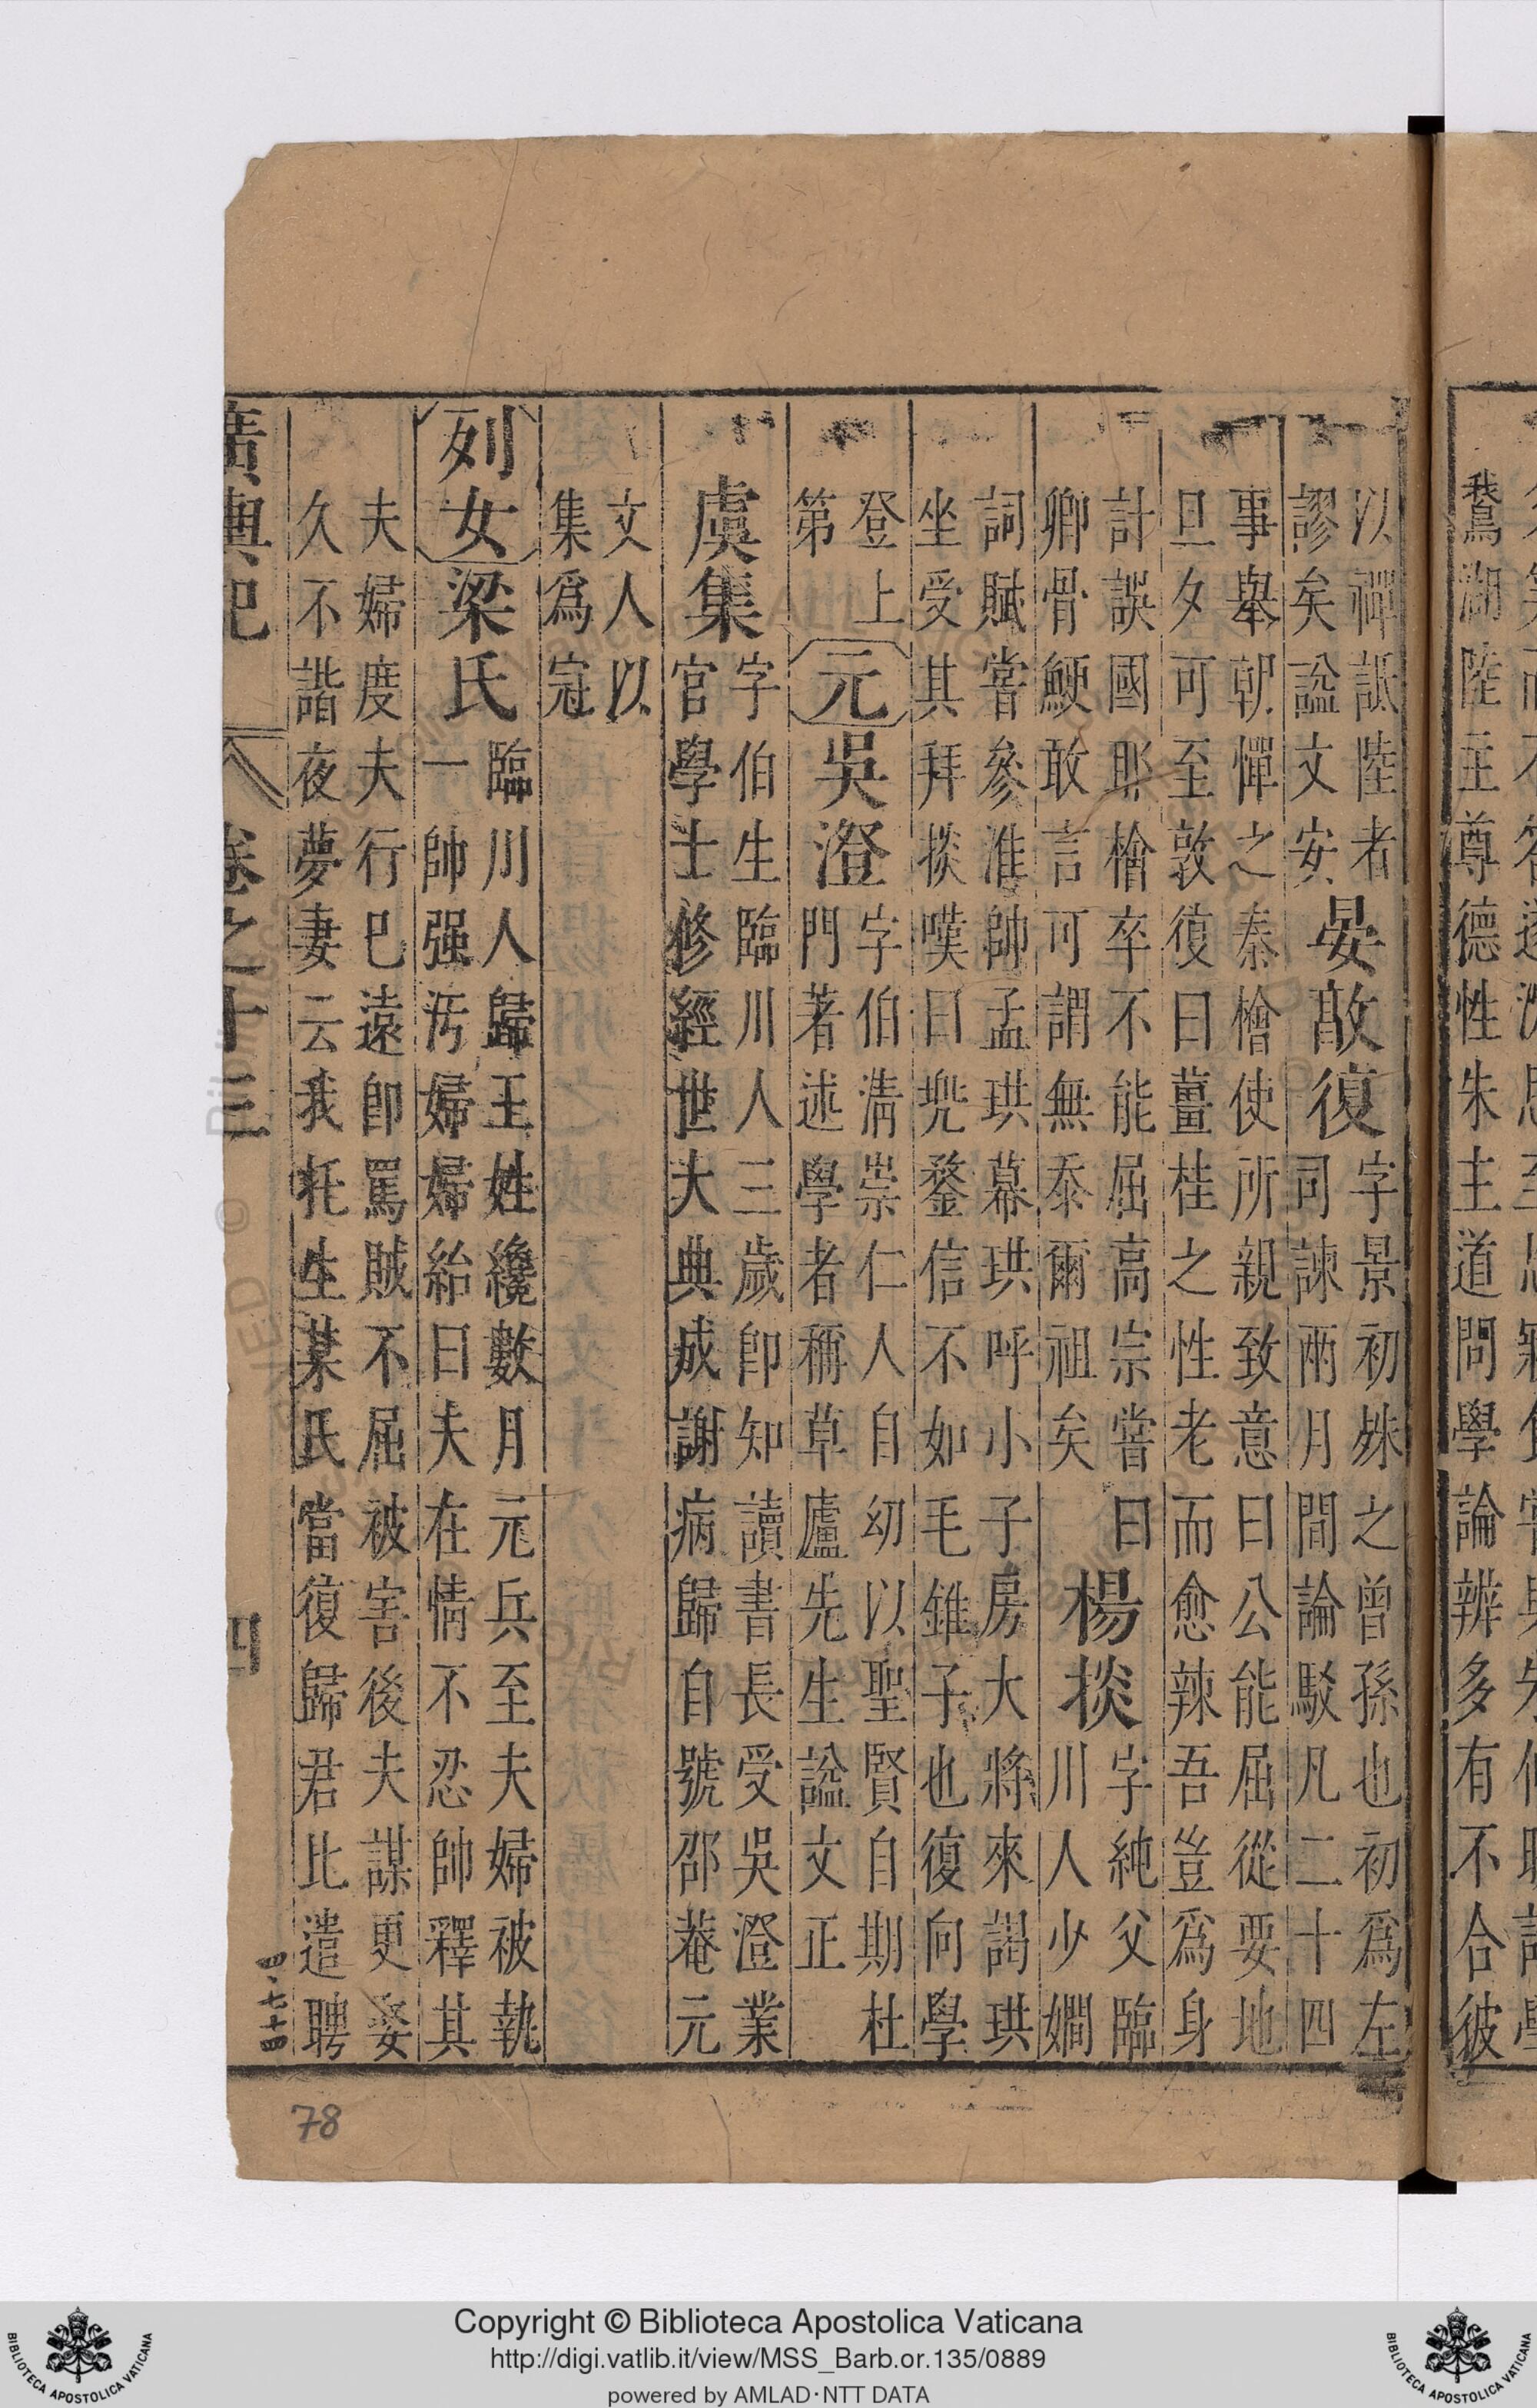 鵞湖陸主尊德性朱主道問學論辨多有不合彼
以禪詆陸者
謬矣謚文安
晏敦復
字景初殊之曾孫也初爲左
司諫兩月間論駁凡二十四
事舉朝憚之秦檜使所親致意曰公能屈從要地
旦夕可至敦復曰薑桂之性老而愈辣吾豈爲身
計誤國耶檜卒不能屈高宗嘗曰
卿骨鯁敢言可謂無忝爾祖矣
楊掞
字純父臨
川人少嫺
詞賦嘗參淮帥孟珙幕珙呼小子房大將來謁珙
坐受其拜掞嘆曰兠鍪信不如毛錐子也復向學
登上
第
元
吳澄
字伯淸崇仁人自幼以聖賢自期杜
門著述學者稱草廬先生謚文正
虞集
字伯生臨川人三歲卽知讀書長受吳澄業
官學士修經世大典成謝病歸自號邵菴元
文人以
集爲冠
列女
梁氏
臨川人歸王姓纔數月元兵至夫婦被執
一帥强汚婦婦紿曰夫在情不忍帥釋其
夫婦度夫行巳遠卽罵賊不屈被害後夫謀更娶
久不諧夜夢妻云我托生某氏當復歸君比遣聘
廣輿記
卷之十三
四
四、七十四
78
Copyright © Biblioteca Apostolica Vaticana
http://digi.vatlib.it/view/MSS_Barb.or.135/0889
powered by AMLAD·NTT DATA
BIBLIOTECA APOSTOLICA VATICANA
BIBLIOTECA APOSTOLICA VATICANA